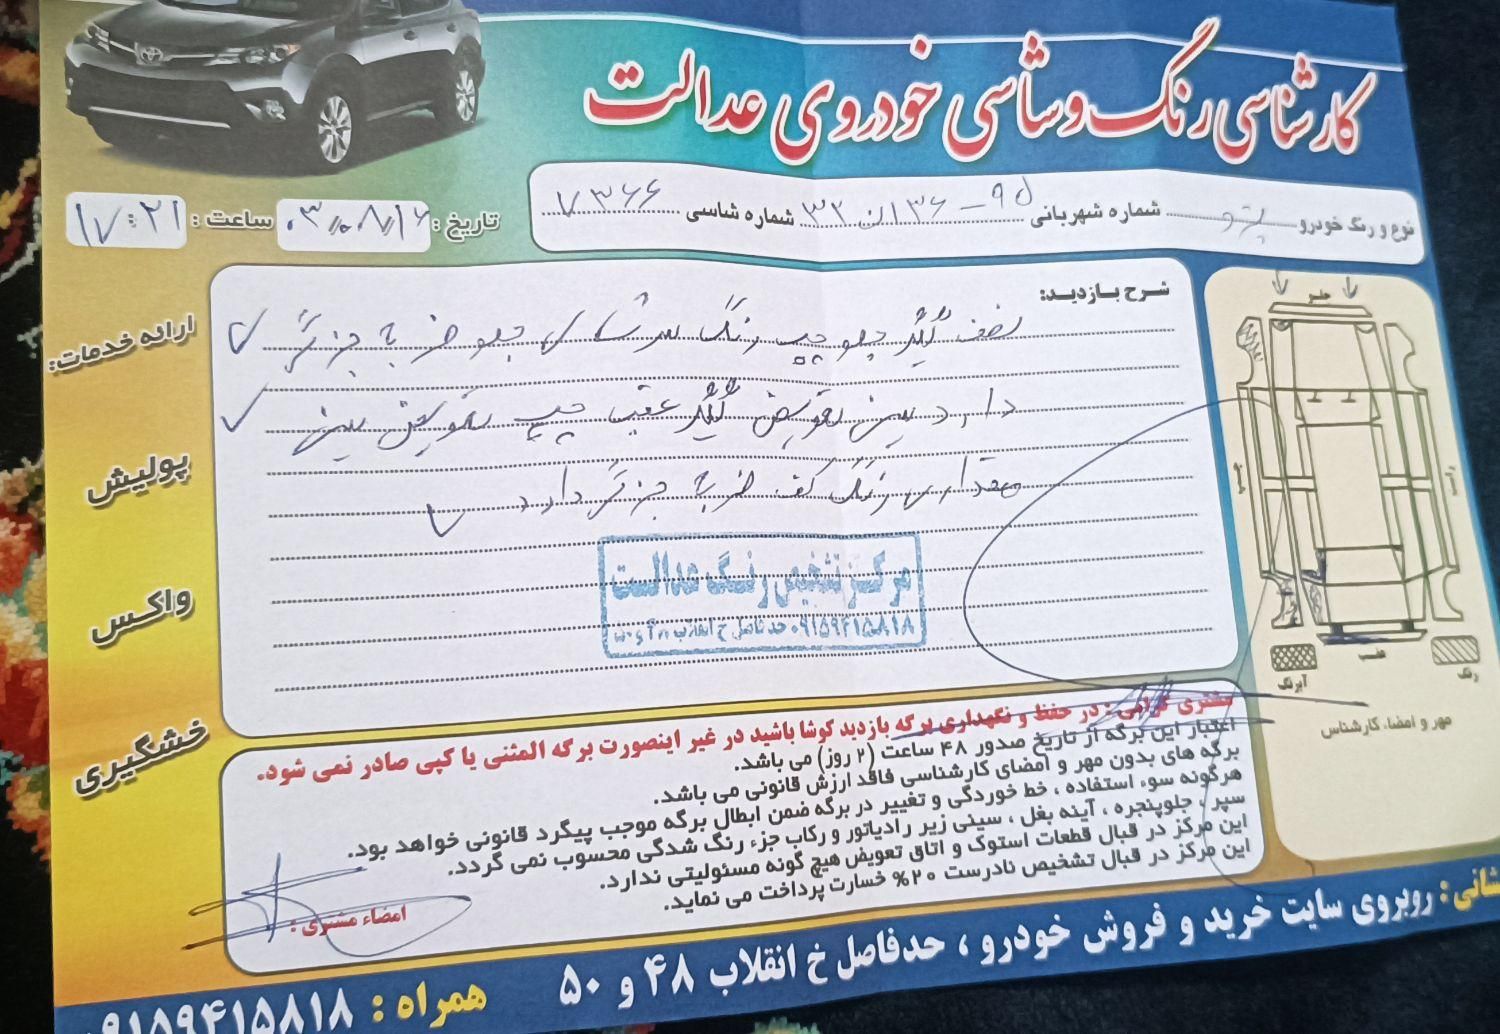 کارشناسی رنگ و شاسی خودروی عدالت
نوع و رنگ خودرو پژو شماره شهربانی ۹۵ - ۱۳۶ ن ۳۲ شماره شاسی ۷۳۶۶
تاریخ : ۰۳/۰۸/۱۶ ساعت : ۱۷:۲۱
شرح بازدید:
نصف گلگیر جلو چپ رنگ سرشاسی جلو ضربه جزئی
دارد سینی تعویض گلگیر عقب چپ تعویض سینی
مقداری رنگ کف ضربه جزئی دارد
مرکز تشخیص رنگ عدالت
۰۹۱۵۹۴۱۵۸۱۸ حدفاصل خ انقلاب ۴۸ و ۵۰
ارائه خدمات:
پولیش
واکس
خشگیری
جلو
چپ
راست
عقب
آبرنگ
رنگ
مهر و امضاء کارشناس
مشتری گرامی : در حفظ و نگهداری برگه بازدید کوشا باشید در غیر اینصورت برگه المثنی یا کپی صادر نمی شود.
اعتبار این برگه از تاریخ صدور ۴۸ ساعت (۲ روز) می باشد.
برگه های بدون مهر و امضای کارشناسی فاقد ارزش قانونی می باشد.
هرگونه سوء استفاده ، خط خوردگی و تغییر در برگه ضمن ابطال برگه موجب پیگرد قانونی خواهد بود.
سپر ، جلوپنجره ، آینه بغل ، سینی زیر رادیاتور و رکاب جزء رنگ شدگی محسوب نمی گردد.
این مرکز در قبال قطعات استوک و اتاق تعویض هیچ گونه مسئولیتی ندارد.
این مرکز در قبال تشخیص نادرست ۲۰% خسارت پرداخت می نماید.
امضاء مشتری :
نشانی : روبروی سایت خرید و فروش خودرو ، حدفاصل خ انقلاب ۴۸ و ۵۰
همراه : ۰۹۱۵۹۴۱۵۸۱۸